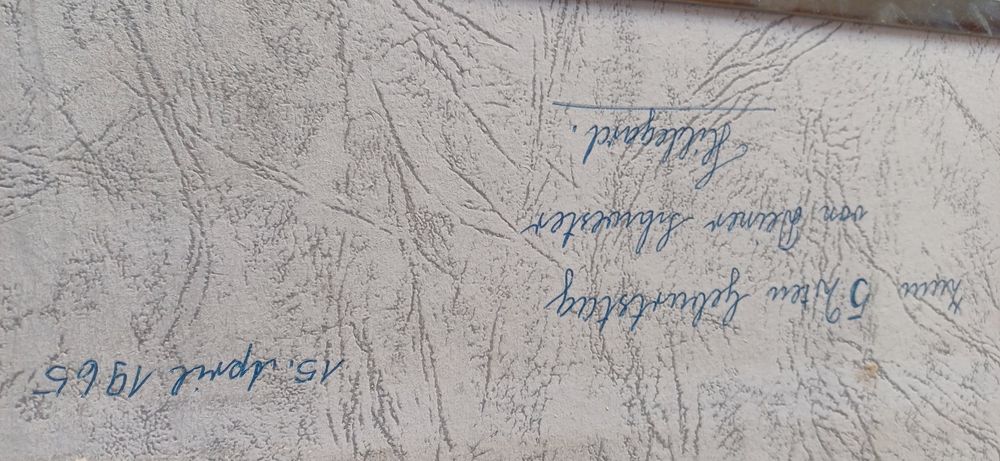 15. April 1965
Zum 52ten Geburtstag
von Deiner Schwester
Hildegard.